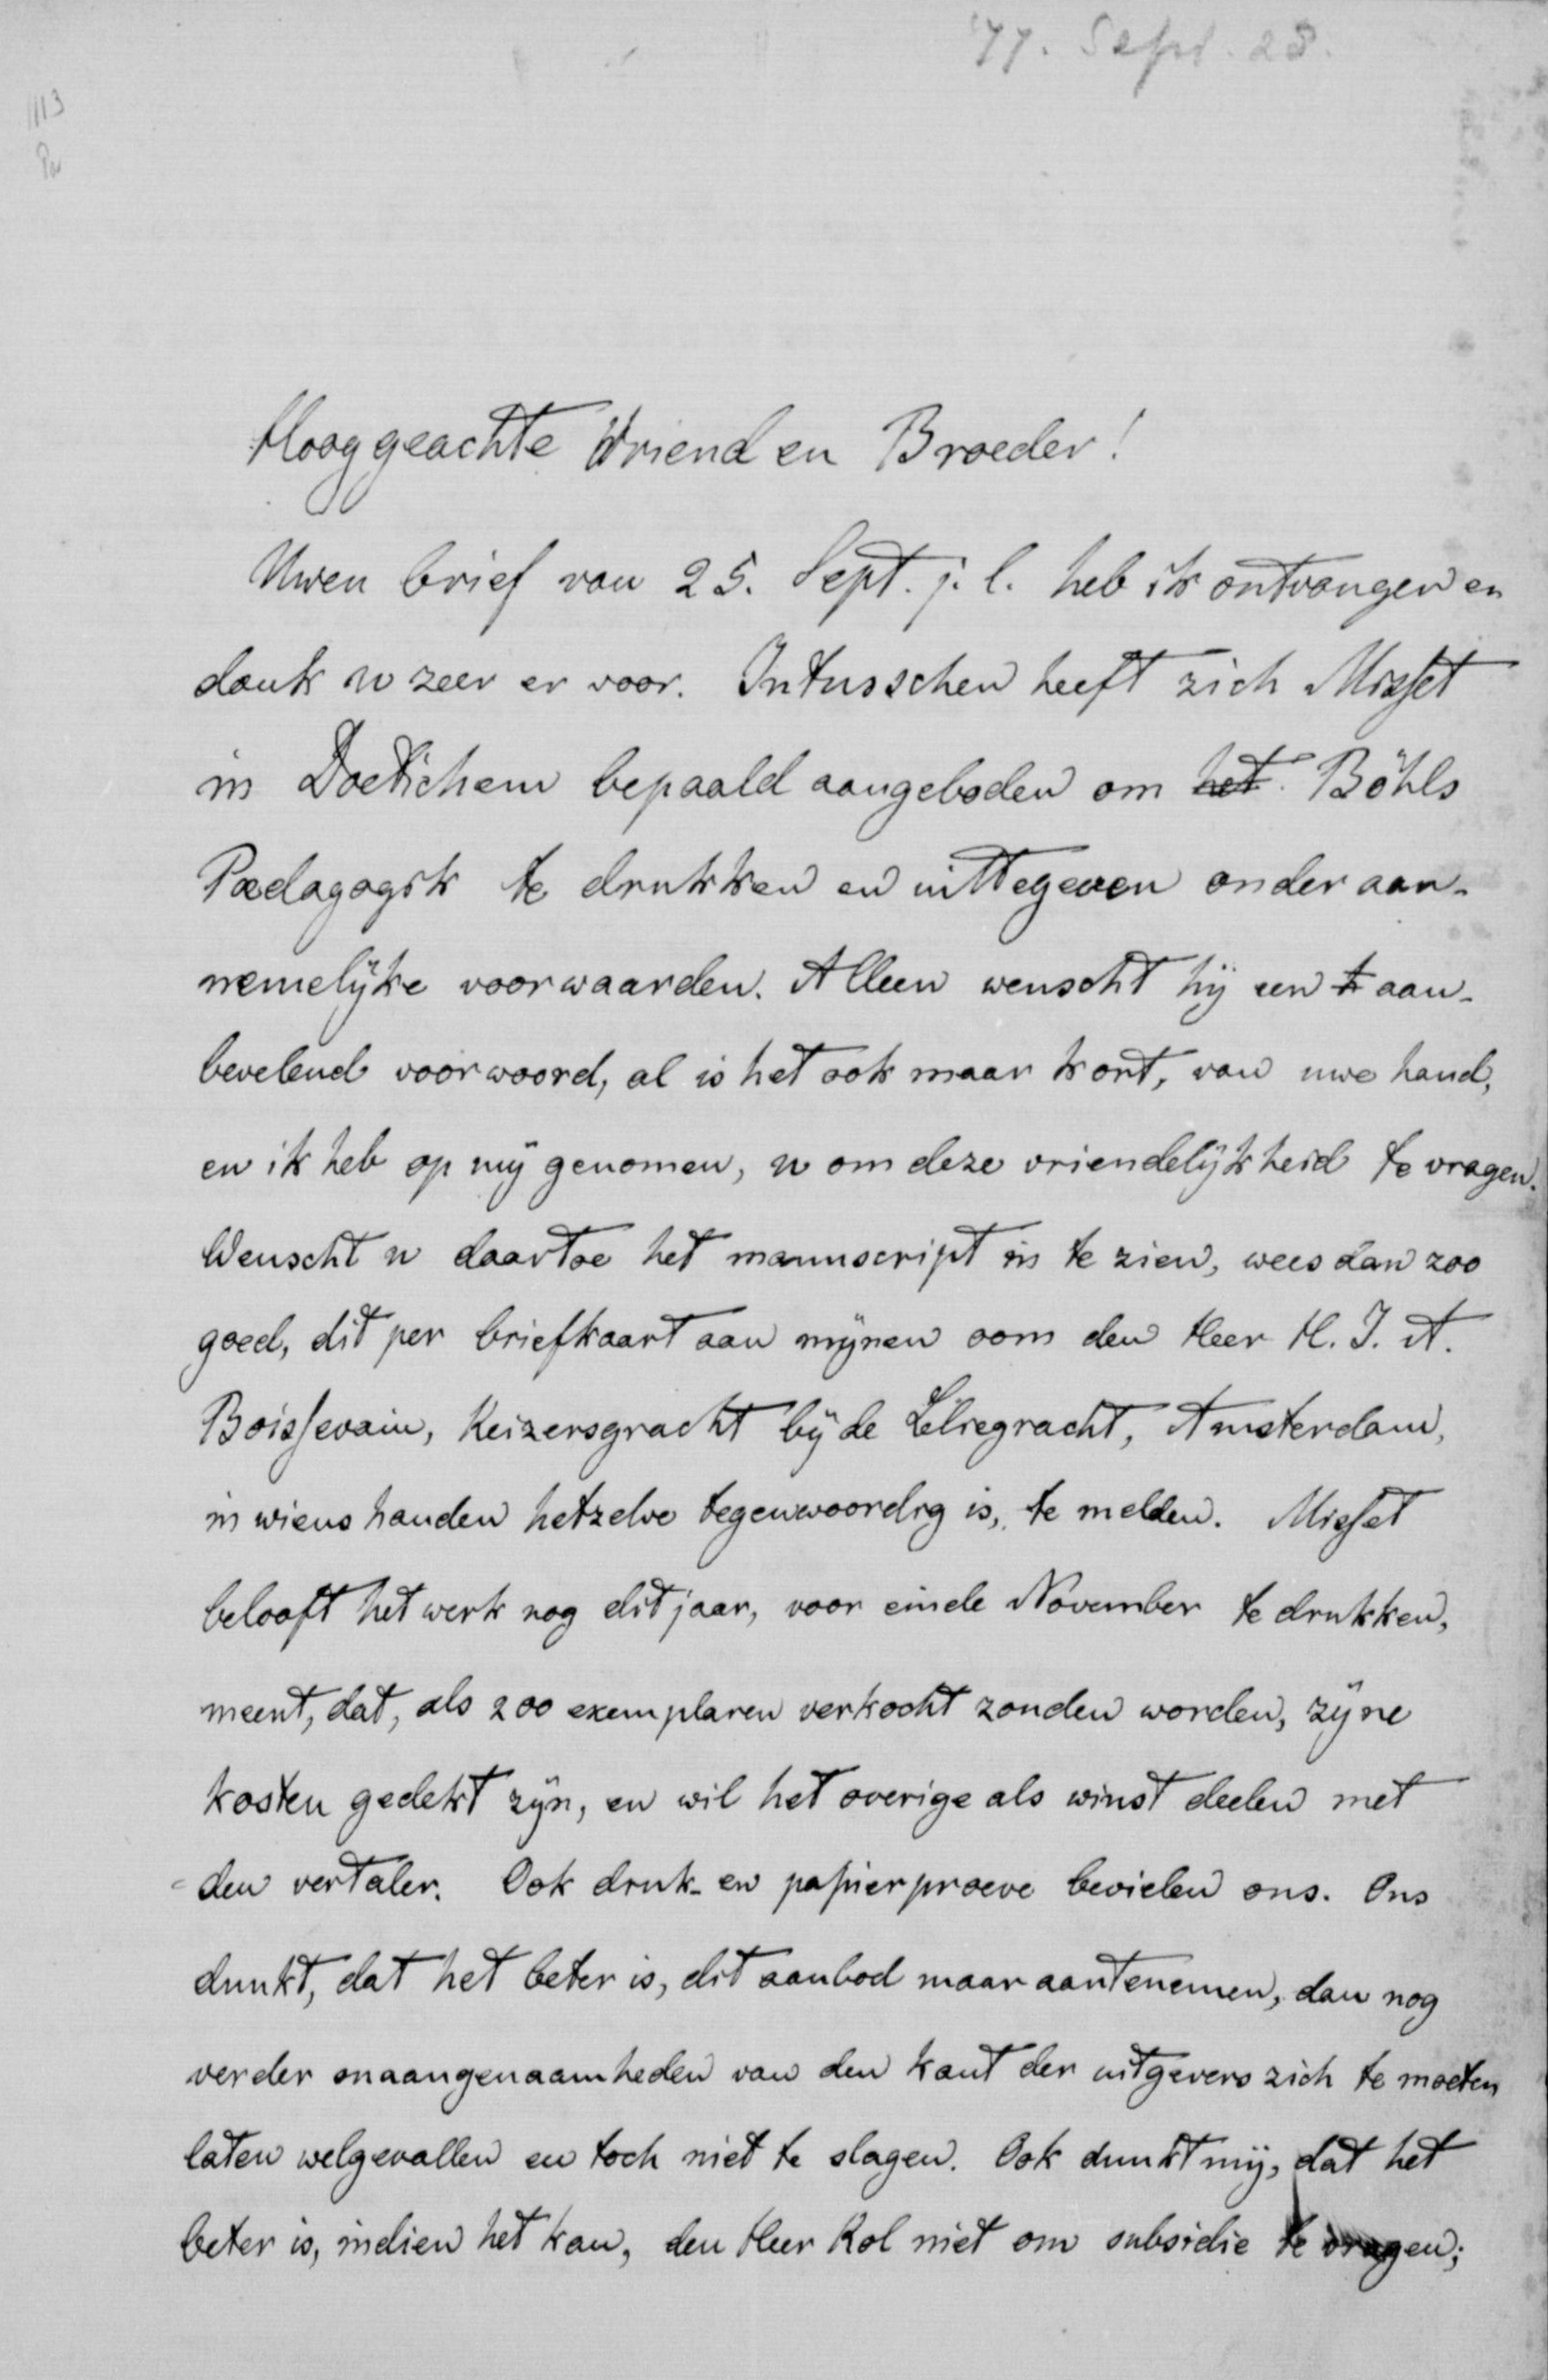 '77. Sept. 28.
1113
Hooggeachte Vriend en Broeder!
Uwen brief van 25. Sept. j. l. heb ik ontvangen en
dank u zeer er voor. Intusschen heeft zich Misset
in Doetichem bepaald aangeboden om het Böhls
Pædagogik te drukken en uittegeven onder aan-
nemelijke voorwaarden. Alleen wenscht hij een t aan-
bevelend voorwoord, al is het ook maar kort, van uwe hand,
en ik heb op mij genomen, u om deze vriendelijkheid te vragen.
Wenscht u daartoe het manuscript in te zien, wees dan zoo
goed, dit per briefkaart aan mijnen oom den Heer H. J. A.
Boissevain, Keizersgracht bij de Leliegracht, Amsterdam,
in wiens handen hetzelve tegenwoordig is, te melden. Misset
belooft het werk nog dit jaar, voor einde November te drukken,
meent, dat, als 200 exemplaren verkocht zouden worden, zijne
kosten gedekt zijn, en wil het overige als winst deelen met
den vertaler. Ook druk- en papierproeve bevielen ons. Ons
dunkt, dat het beter is, dit aanbod maar aantenemen, dan nog
verder onaangenaamheden van den kant der uitgevers zich te moeten
laten welgevallen en toch niet te slagen. Ook dunkt mij, dat het
beter is, indien het kan, den Heer Kol niet om subsidie te vragen;